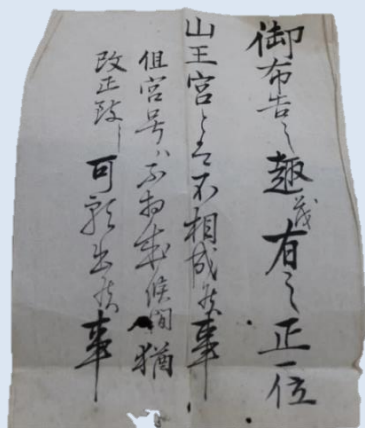 御布告之趣茂有之正一位
山王宮と者不相成候事
但宮号ハ不相成候間猶
改正致し可願出候事